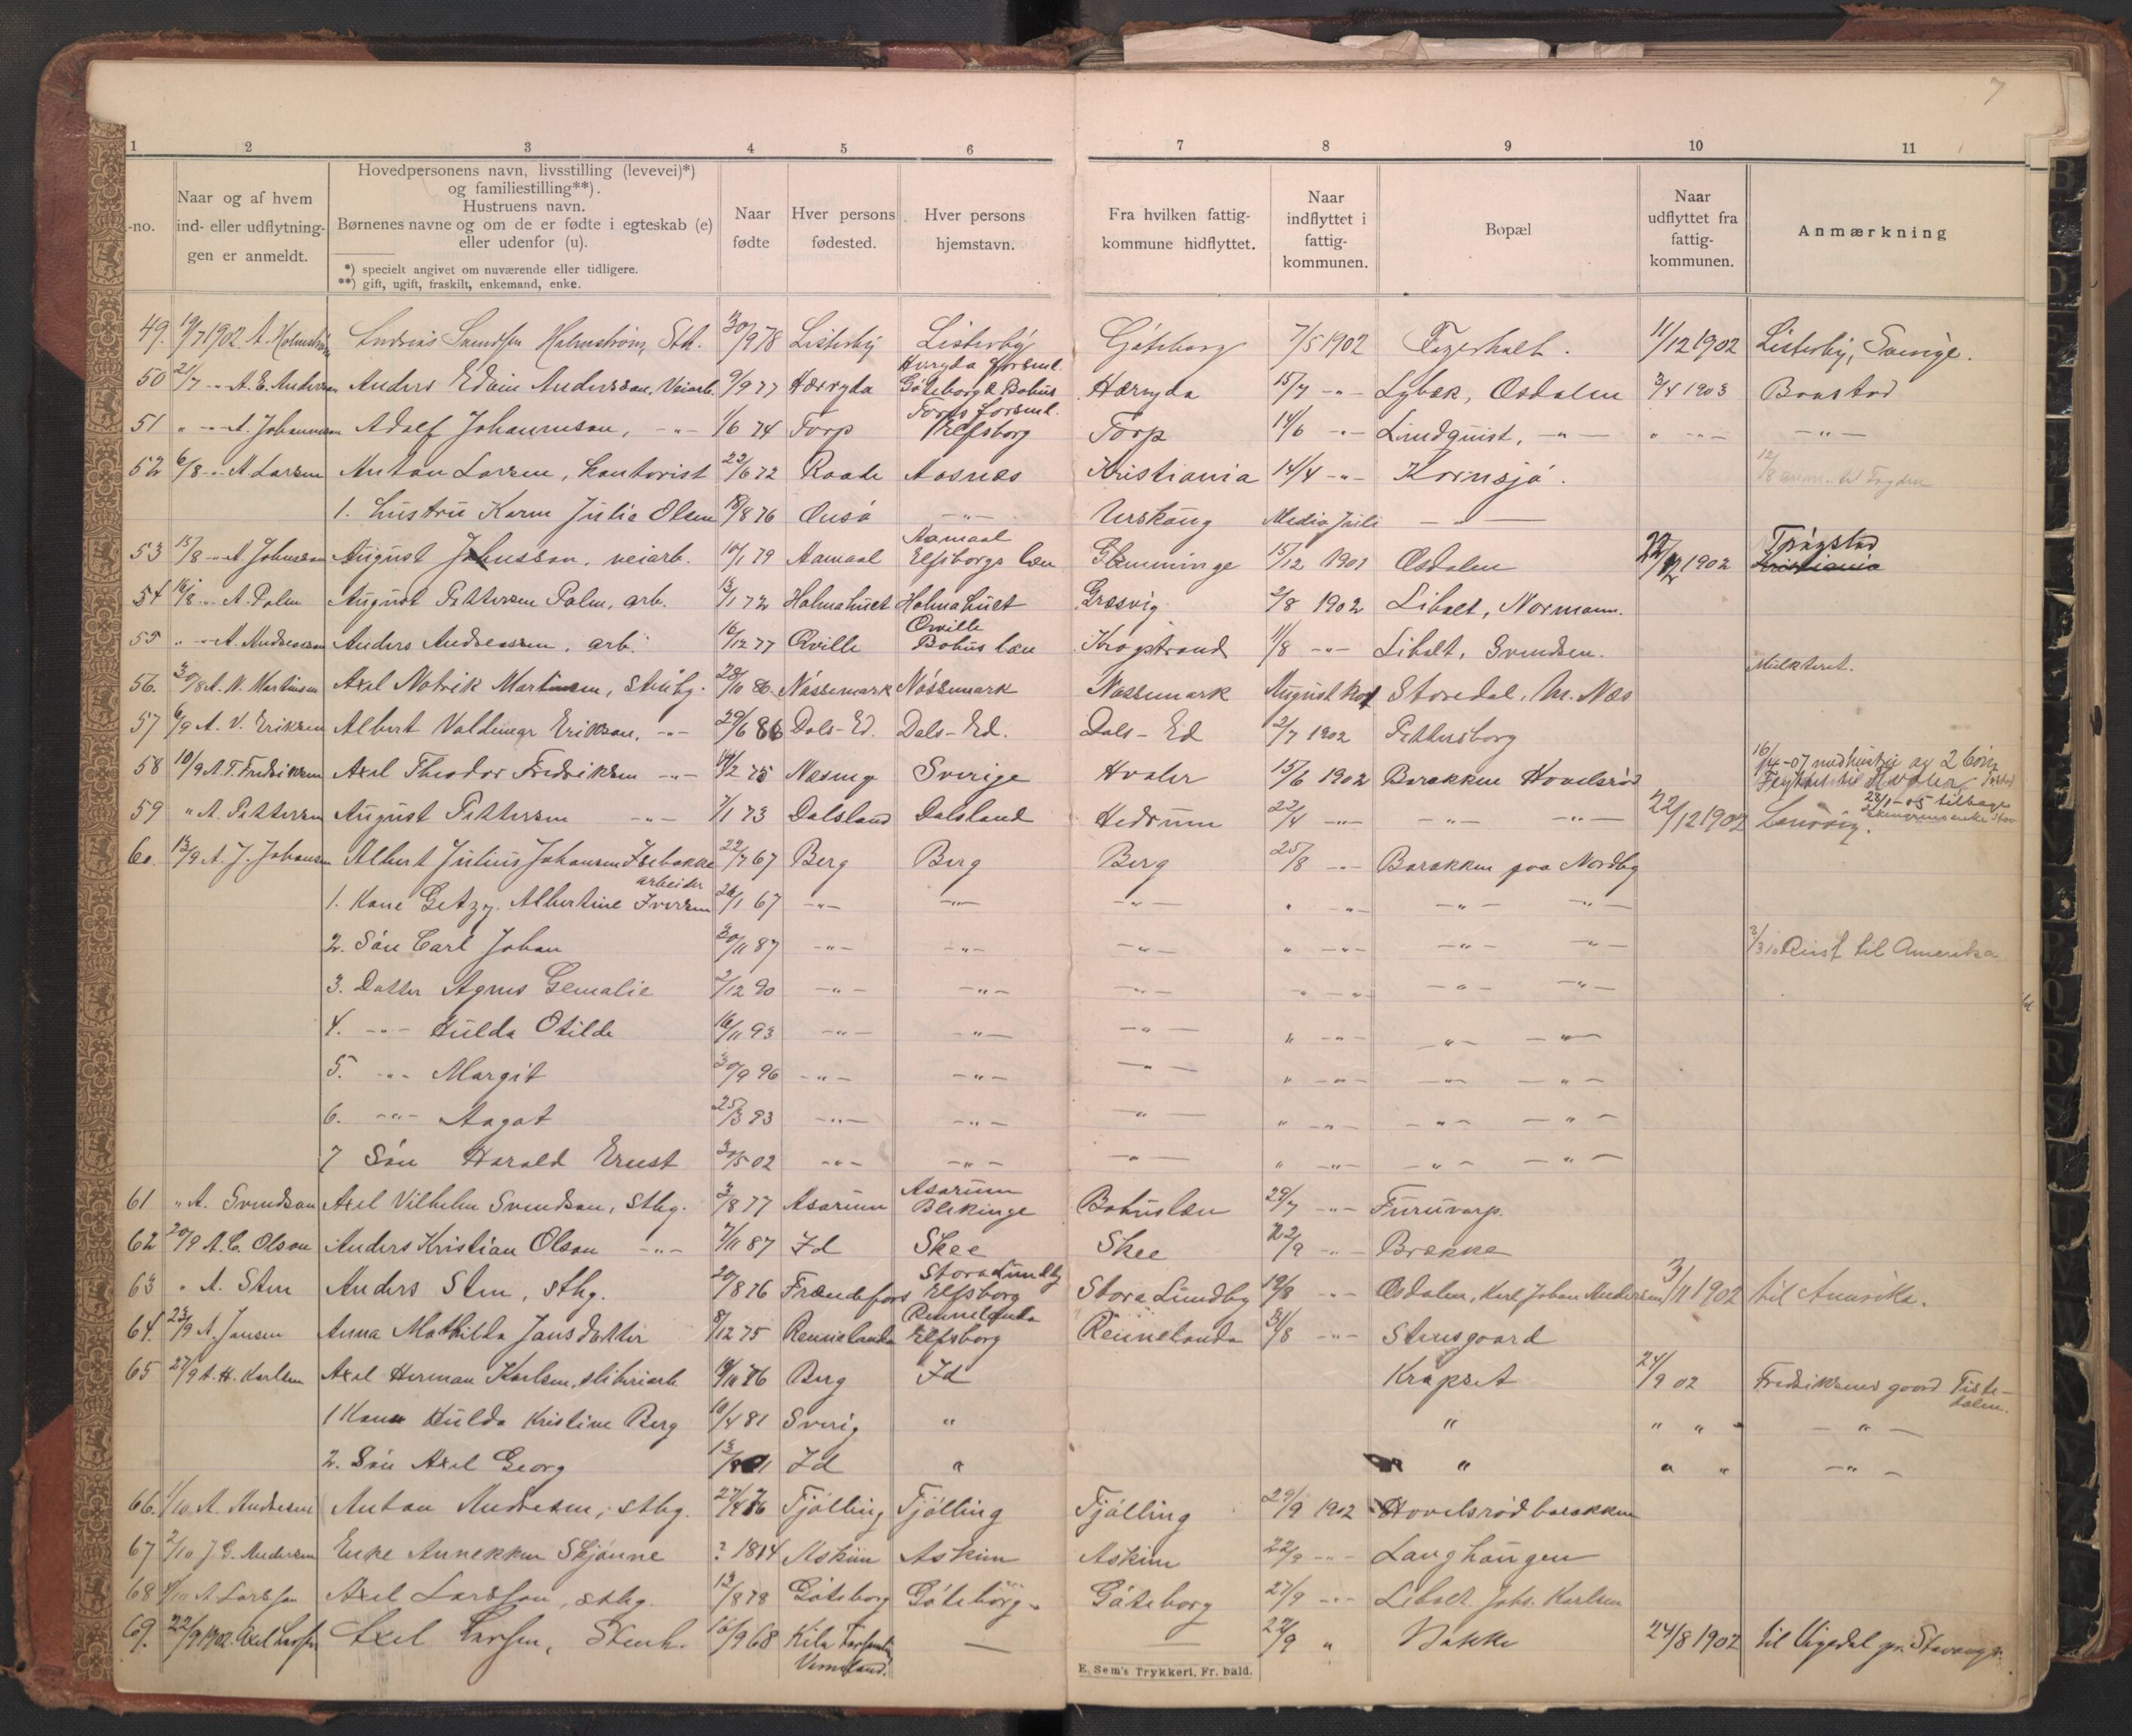 7
1 2 3 4 5 6 7 8 9 10 11
-no.
Naar og af hvem
ind- eller udflytnin-
gen er anmeldt.
Hovedpersonens navn, livsstilling (levevei)*)
og familiestilling**).
Hustruens navn.
Børnenes navne og om de er fødte i egteskab (e)
eller udenfor (u).
*) specielt angivet om nuværende eller tidligere.
**) gift, ugift, fraskilt, enkemand, enke.
Naar
fødte
Hver persons
fødested.
Hver persons
hjemstavn.
Fra hvilken fattig-
kommune hidflyttet.
Naar
indflyttet i
fattig-
kommunen.
Bopæl
Naar
udflyttet fra
fattig-
kommunen.
Anmærkning
49. 19/7 1902 A. Holmstrøm Holmstrøm, Sth. 30/9 78 Listerby Listerby Göteborg 7/5 1902 Fagerholt. 11/12 1902 Listerby, Sverige.
Herryda forsml.
50 21/7 -"- A. E. Anderson Anders Edvin Andersson, Veiarb. 9/9 77 Herryda Göteborg & Bohus Herryda 15/7 -"- Lybæk, Øsdalen 3/4 1903 Baastad
Torps forsml.
51 " -"- A. Johannson Adolf Johannson, -"- 1/6 74 Torp Elfsborg Torp 14/6 -"- Lindquist, -"- " -"- -"-
52 6/8 -"- A. Larsen Anton Larsen, kontorist 22/6 72 Raade Aasnæs Kristiania 14/4 -"- Kornsjø. 12/8 til Fogden
1. Hustru Karen Julie Olsen 18/8 76 Onsø -"- Urskoug Medio Juli -"-
Aamaal Trøgstad
53 15/8 -"- A. Johnsson August Johnsson, veiarb. 10/1 79 Aamaal Elfsborgs læn Glemminge 15/12 1901 Øsdalen 22/12 1902 Kristiania
54 16/8 -"- A. Palm August Pettersen Palm, arb. 13/1 72 Holmahult Holmahult Græsvig 2/8 1902 Liholt, Normann.
Qville
55 " -"- A. Andreassen Anders Andreassen, arb. 16/12 77 Qville Bohus læn Krogstrand 11/8 -"- Liholt, Svendsen.
Mulkteret.
56. 30/8 A. N. Martinsen Axel Natvik Martinsen, sthug. 28/10 86 Nössemark Nössemark Nössemark August Storedal, Næs
57 6/9 A. V. Eriksen Albert Valdemar Erikson, -"- 29/6 86 Dals-Ed. Dals-Ed. Dals-Ed 2/7 1902 Pettersborg
58 10/9 A. T. Fredriksen Axel Theodor Fredriksen -"- 14/2 75 Næsing Sverige Hvaler 15/6 1902 Barakken Hovelsrød 16/4-07 med hustru og 2 børn
Flyttet til Hvaler
59 " A. Pettersen August Pettersen -"- 7/1 73 Dalsland Dalsland Hedrum 22/4 -"- -"- -"- 22/12 1902 Laurvig. 28/1-05 tilbage
60. 13/9 A. J. Johansen Albert Julius Johansen Isebakke 22/7 67 Berg Berg Berg 25/8 -"- Barakken paa Nordby
arbeider
1. Kone Getzy Albertine Iversen 26/1 67 -"- -"- -"- " -"- -"- -"-
2. Søn Carl Johan 30/11 87 -"- -"- -"- " -"- -"- -"- 2/3 10 Reist til Amerika
3. Datter Agnes Gemalie 2/12 90 -"- -"- -"- " -"- -"- -"-
4. -"- Hulda Otilde 16/11 93 -"- -"- -"- " -"- -"- -"-
5. -"- Margit 30/9 96 -"- -"- -"- " -"- -"- -"-
6. -"- Aagot 25/3 93 -"- -"- -"- " -"- -"- -"-
7 Søn Harald Ernst 30/5 02 -"- -"- -"- " -"- -"- -"-
Asarum
61 " A. Svendson Axel Vilhelm Svendson, sthg. 3/8 77 Asarum Blekinge Bohuslæn 29/7 -"- Furuvarp.
62 20/9 A. C. Olson Anders Kristian Olson -"- 7/11 87 Id Skee Skee 22/9 -"- Brække
Stora Lundby
63 " A. Sten Anders Sten, sthg. 20/8 76 Frændefors Elfsborg Stora Lundby 19/8 -"- Øsdalen, Karl Johan Andersen 3/11 1902 til Amerika.
Rennelanda
64. 23/9 A. Jansen Anna Mathilda Jansdatter 8/12 75 Rennelanda Elfsborg Rennelanda 31/8 -"- Stensgaard
65 27/9 A. H. Karlsen Axel Herman Karlsen, sliberiarb. 19/11 76 Berg Id Krapset 24/9 02 Fredriksens gaard Tiste-
dalen.
1 Kone Hulda Kristine Berg 10/4 81 Sverig " " " " -"-
2. Søn Axel Georg Id " " " " -"-
66. 1/10 A. Andresen Anton Andresen, sthg. 27/4 76 Tjølling Tjølling Tjølling 29/9 1902 Hovelsrødbarakken
67 2/10 J. G. Andersen Enke Annekken Skjønne ? 1814 Askim Askim Askim 22/9 -"- Langhaugen
68 A. Larsson Axel Larsson, sthg. 13/8 78 Göteborg Göteborg Göteborg 27/9 -"- Liholt Johs. Karlsen
69. 22/9 1902 Axel Larsen Axel Larsen, Stenh. 16/9 68 Kila Forsamling — — 22/9 " Bakke 24/8 1902 til Vigedal pr. Stavanger.
Vermland.
E. Sem's Trykkeri, Fr. hald.